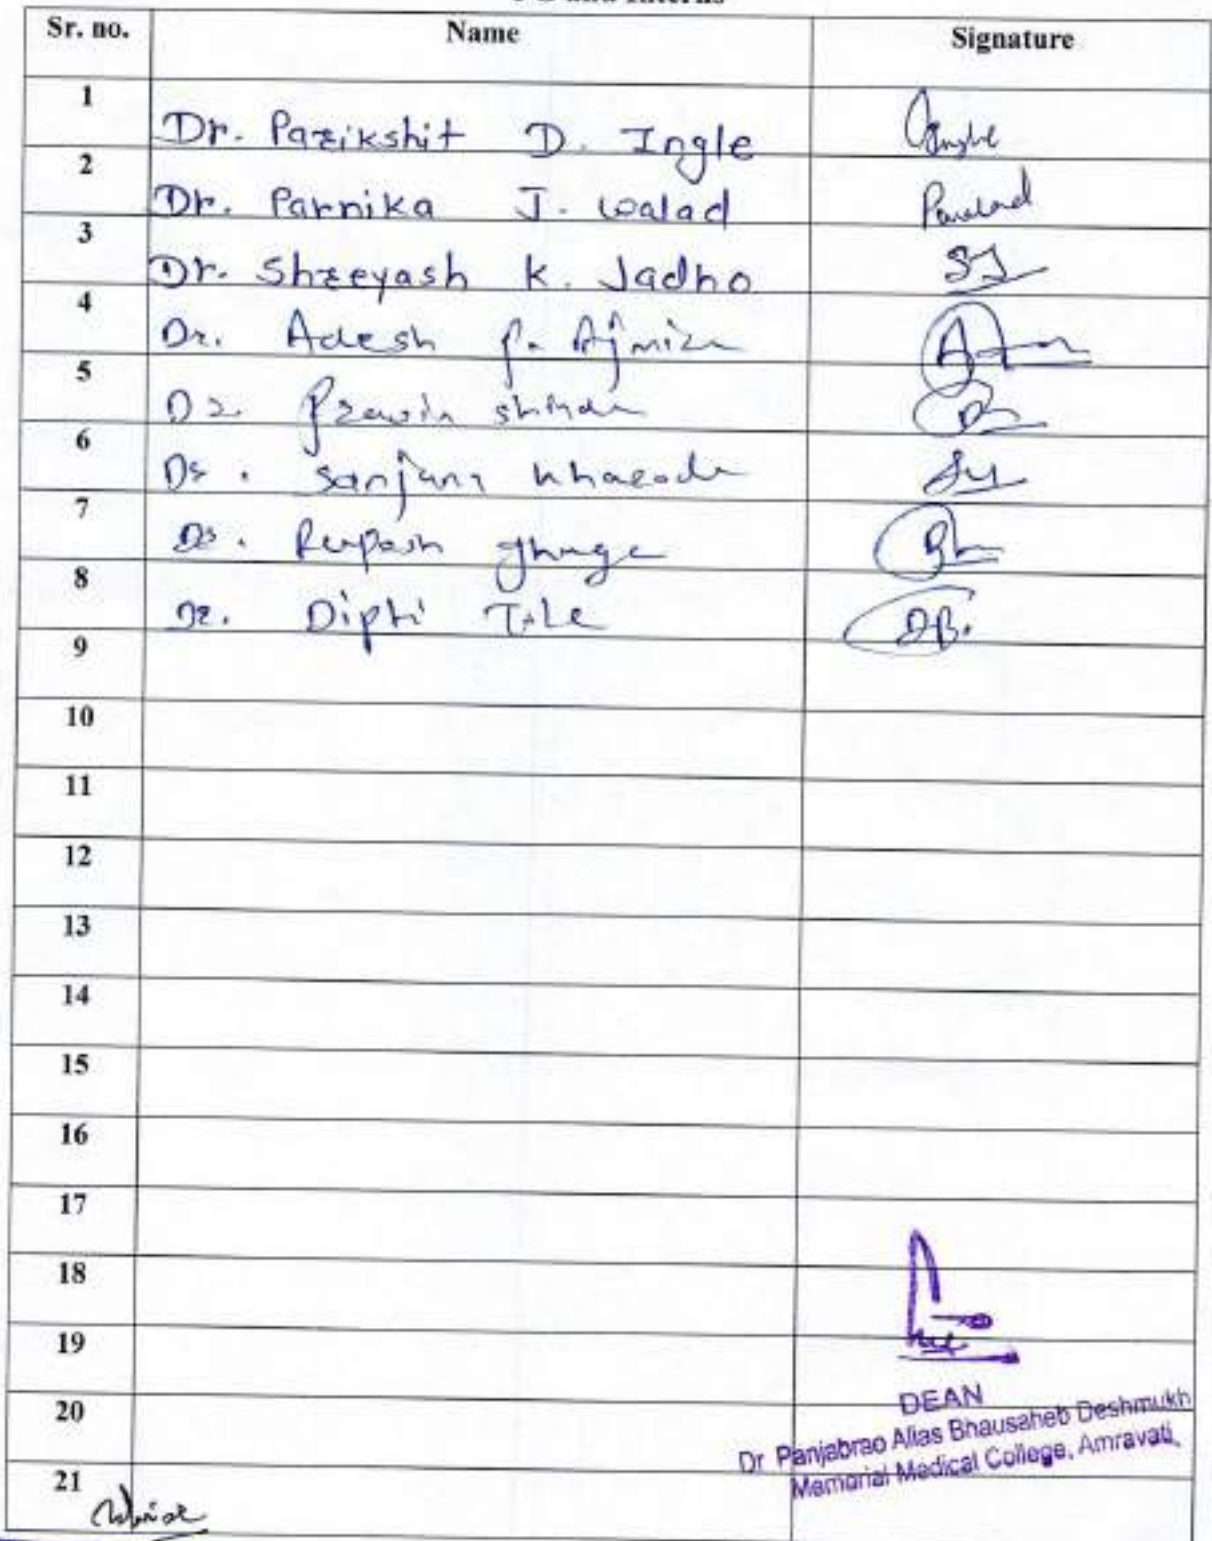 and Interns
Sr. no. Name Signature
1 Dr. Parikshit D. Ingle
2 Dr. Parnika J. Walad
3 Dr. Shreeyash K. Jadho
4 Dr. Adesh P. Ajmire SJ
5 Dr. Pravin Shinde
6 Dr. Sanjana
7 Dr. Rupesh Ghuge
8 Dr. Dipti DB.
9
10
11
12
13
14
15
16
17
18
19
20
21
DEAN
Dr Panjabrao Alias Bhausaheb Deshmukh
Memorial Medical College, Amravati.